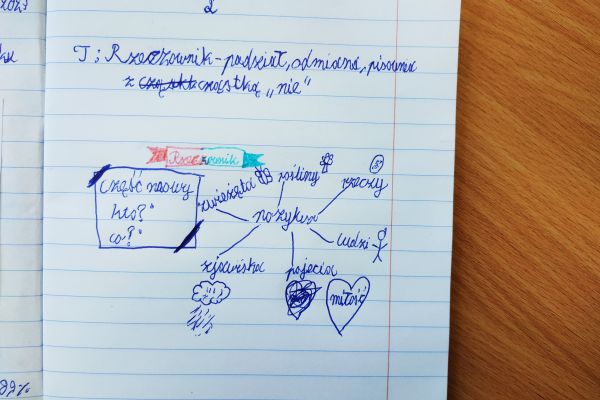 2
T: Rzeczownik - podział, odmiana, pisownia
z cząstką „nie"
Rzeczownik
część mowy
kto?"
co?"
zwierzęta
rośliny
rzeczy
nazywa
ludzi
zjawiska
pojęcia
miłość